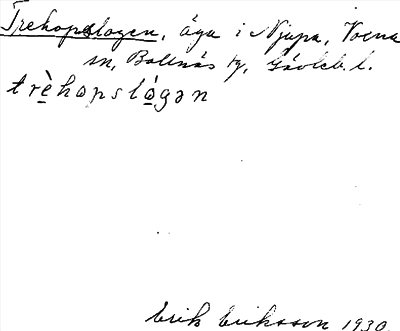 Trehopslogen, äga i Njupa, Voxna
sn, Bollnäs tg, Gävleb. l.
trèhopslógən
Erik Eriksson 1930.